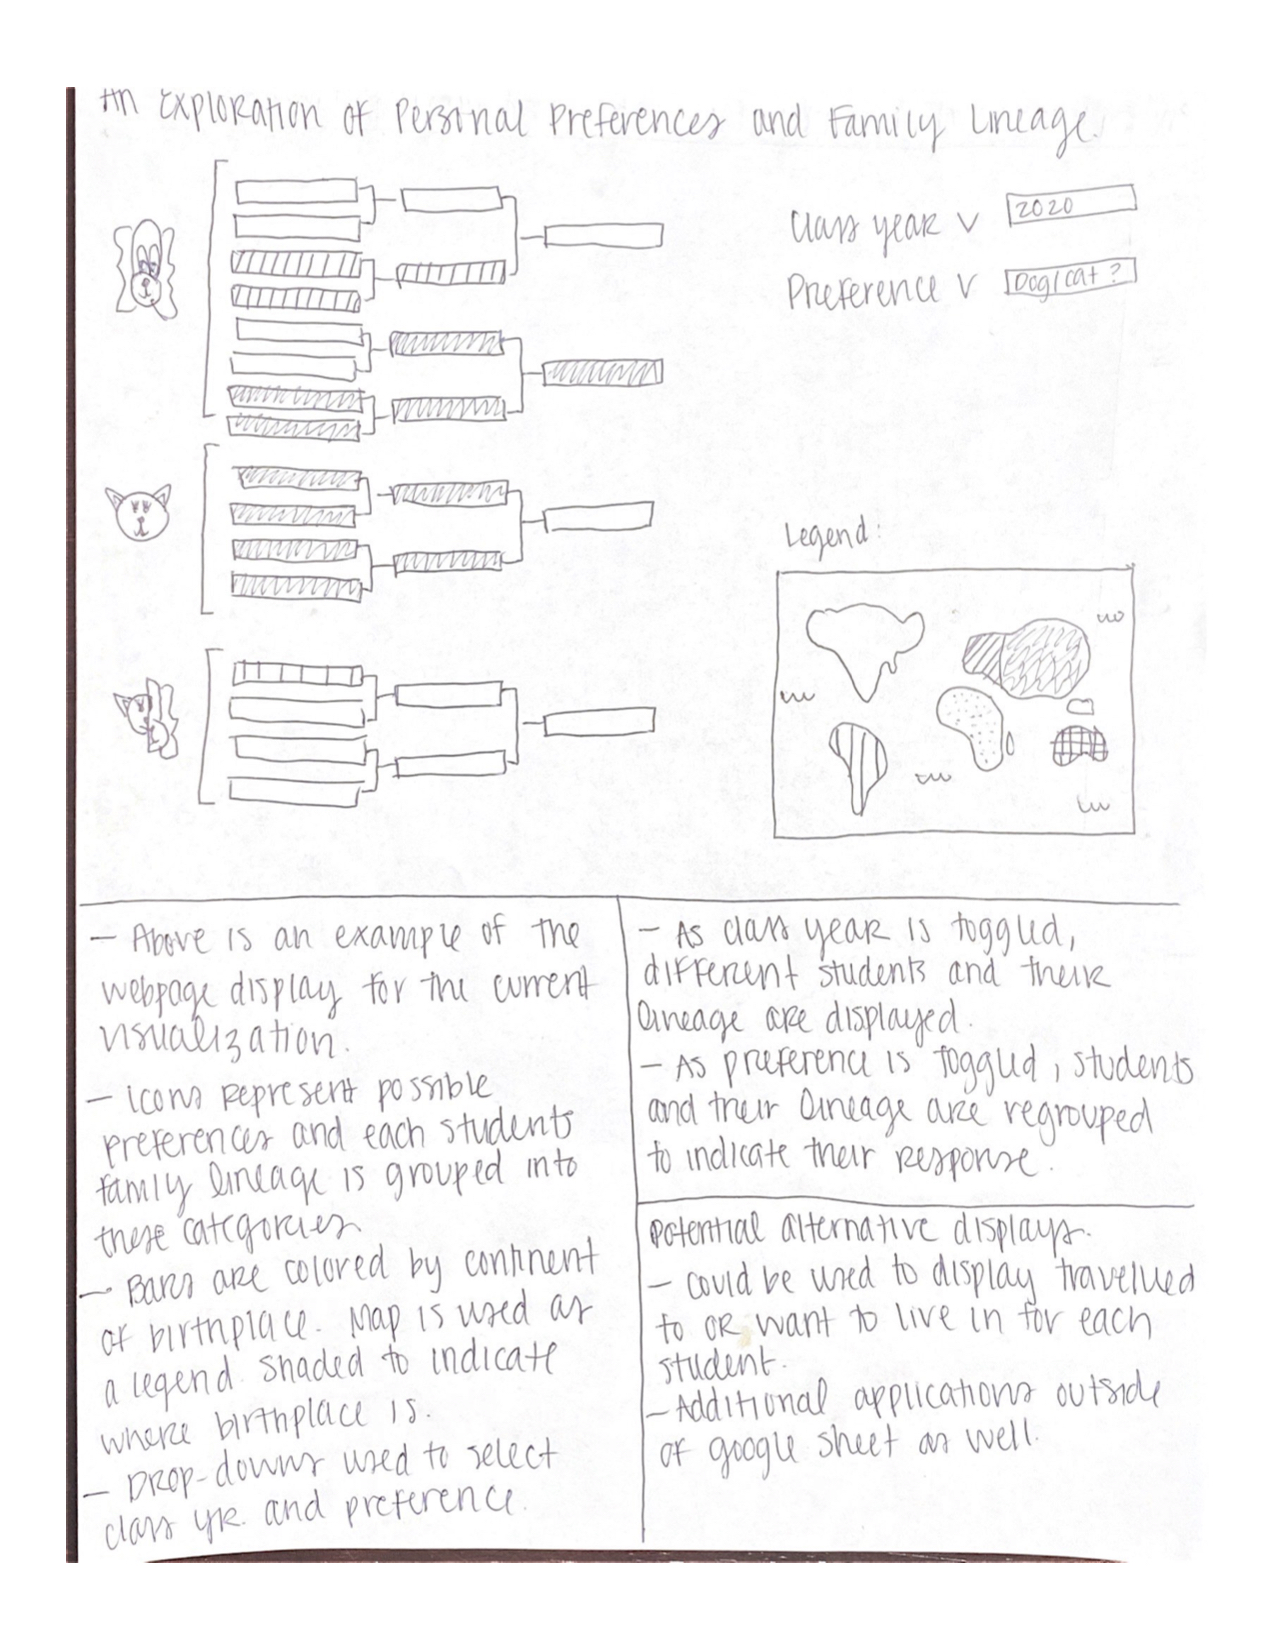 An Exploration of Personal Preferences and Family Lineage.
Class year v 2020
Preference v Dog/cat?
Legend:
- Above is an example of the
webpage display for the current
visualization.
- Icons represent possible
preferences and each students
family lineage is grouped into
these categories
- Bars are colored by continent
of birthplace. Map is used as
a legend shaded to indicate
where birthplace is.
- Drop-downs used to select
class yr. and preference.
- As class year is toggled,
different students and their
lineage are displayed.
- As preference is toggled, students
and their lineage are regrouped
to indicate their response.
Potential alternative displays.
- could be used to display travelled
to or want to live in for each
student.
- Additional applications outside
of google sheet as well.